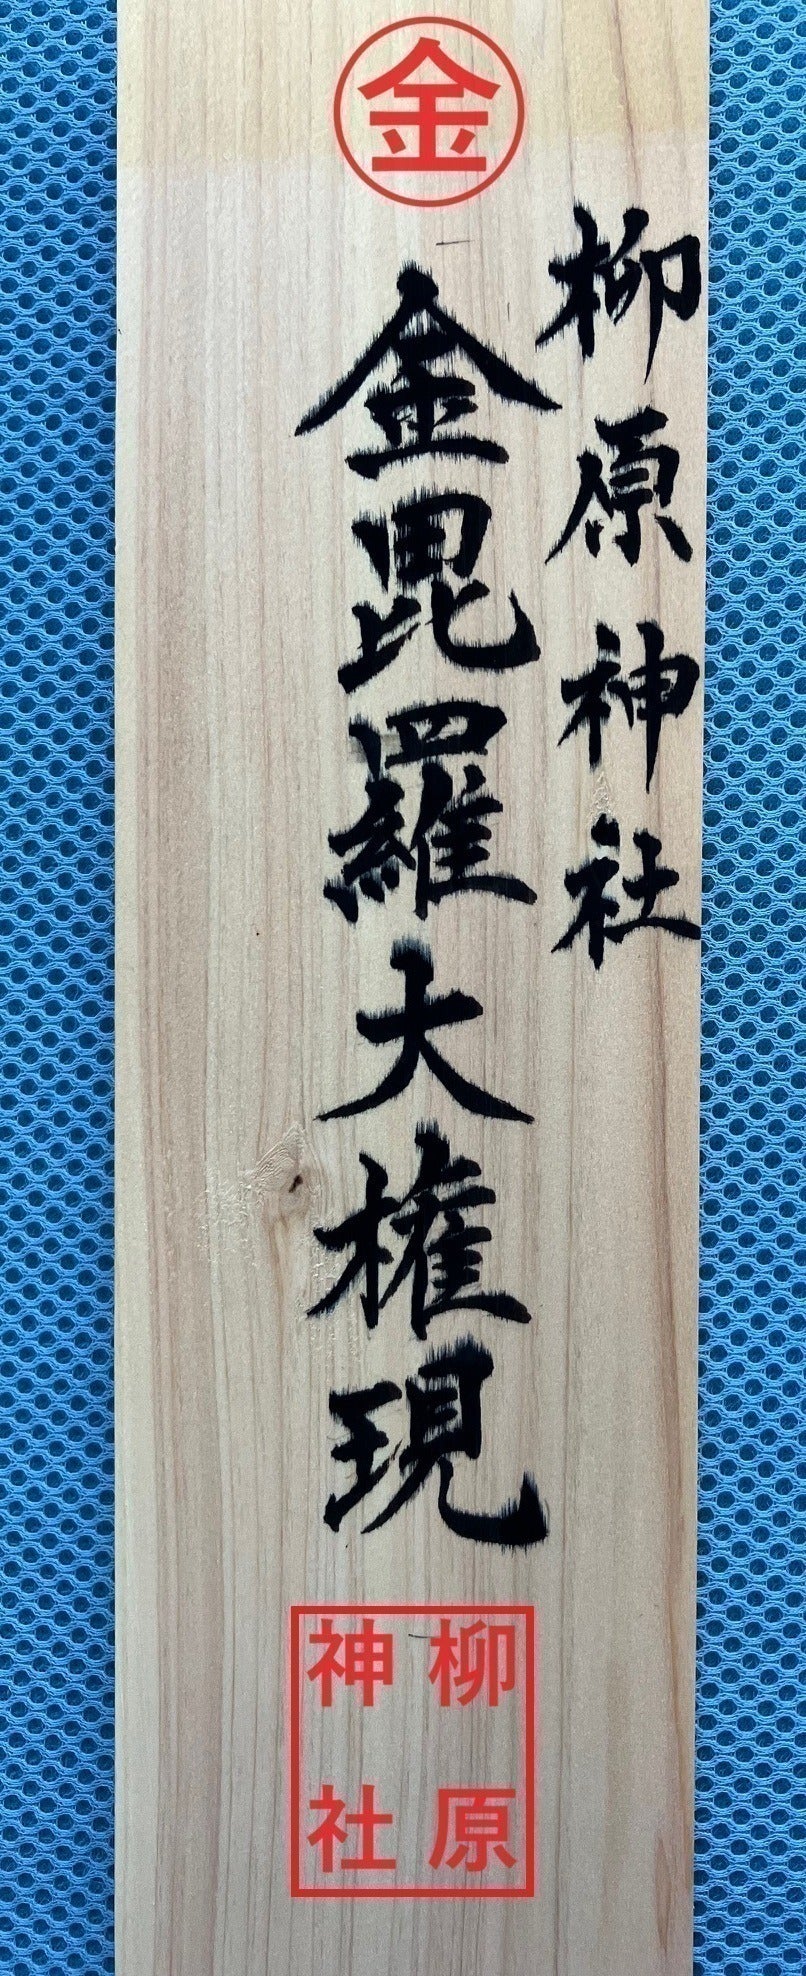 金
柳原神社
金毘羅大権現
柳原
神社